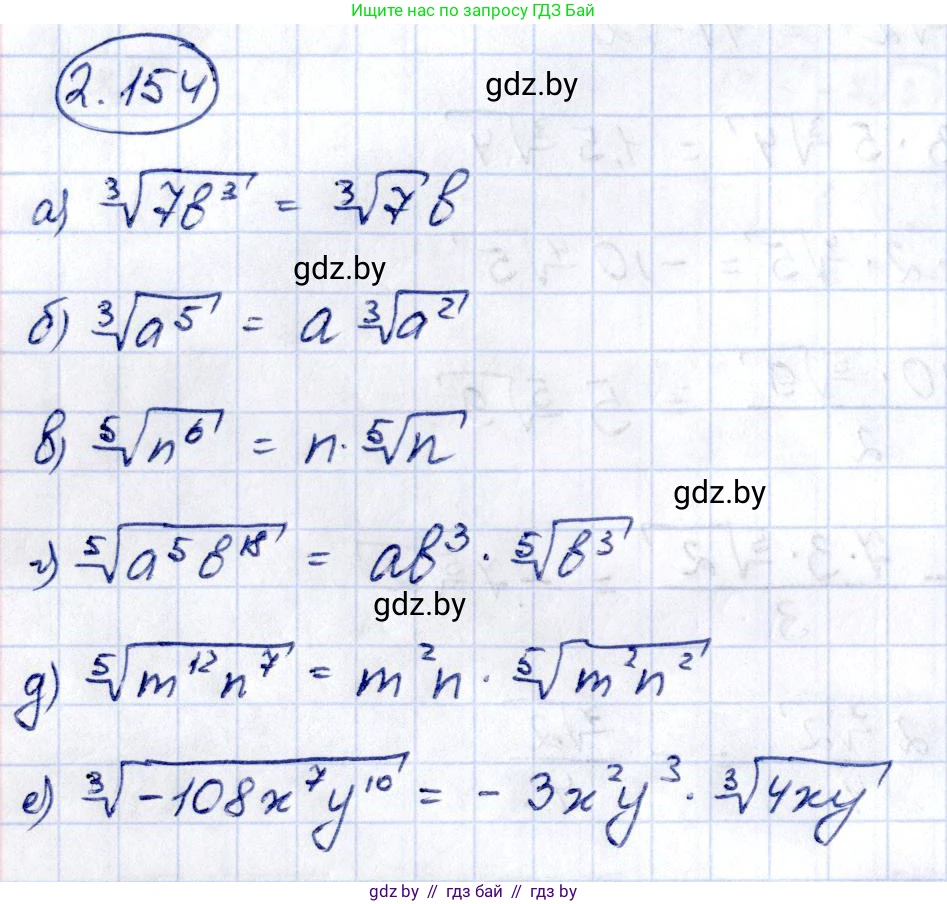 Ищите нас по запросу ГДЗ Бай
2.154
gdz.by
а) ∛(7b³) = ∛7 b
gdz.by
б) ∛(a⁵) = a ∛(a²)
в) ⁵√(n⁶) = n · ⁵√n
gdz.by
г) ⁵√(a⁵b¹⁸) = ab³ · ⁵√(b³)
gdz.by
д) ⁵√(m¹²n⁷) = m²n · ⁵√(m²n²)
е) ∛(-108x⁷y¹⁰) = - 3x²y³ · ∛(4xy)
gdz.by // гдз бай // гдз by